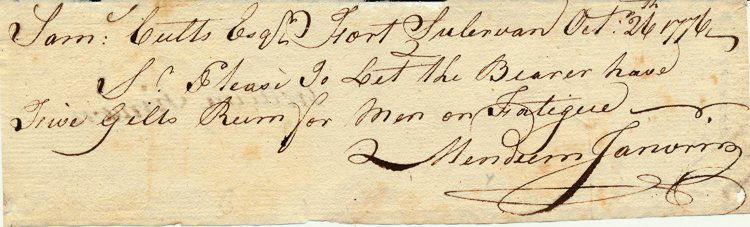 Sam.l Cutts Esq.r Fort Sulervan Oct.r 26th 1776
S.r Please To Let the Bearer have
Five Gills Rum for Men on Fatigue
Mendum Janvrin